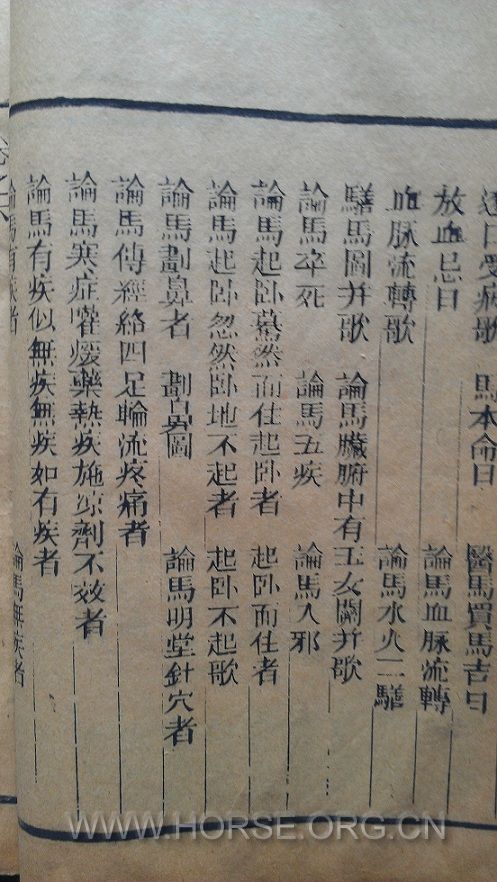 逐日受病歌　馬本命日　醫馬買馬吉日
放血忌日　論馬血脉流轉
血脉流轉歌　論馬水火二騸
騸馬圖并歌　論馬臟腑中有玉女關并歌
論馬卒死　論馬五疾　論馬八邪
論馬起卧驀然而住起卧者　起卧而住者
論馬起卧忽然卧地不起者　起卧不起歌
論馬劃鼻者　劃鼻圖　論馬明堂針穴者
論馬傳經絡四足輪流疼痛者
論馬寒症嚾煖藥熱疾施凉劑不效者
論馬有疾似無疾無疾如有疾者
論馬有疾者　論馬無疾者
WWW.HORSE.ORG.CN